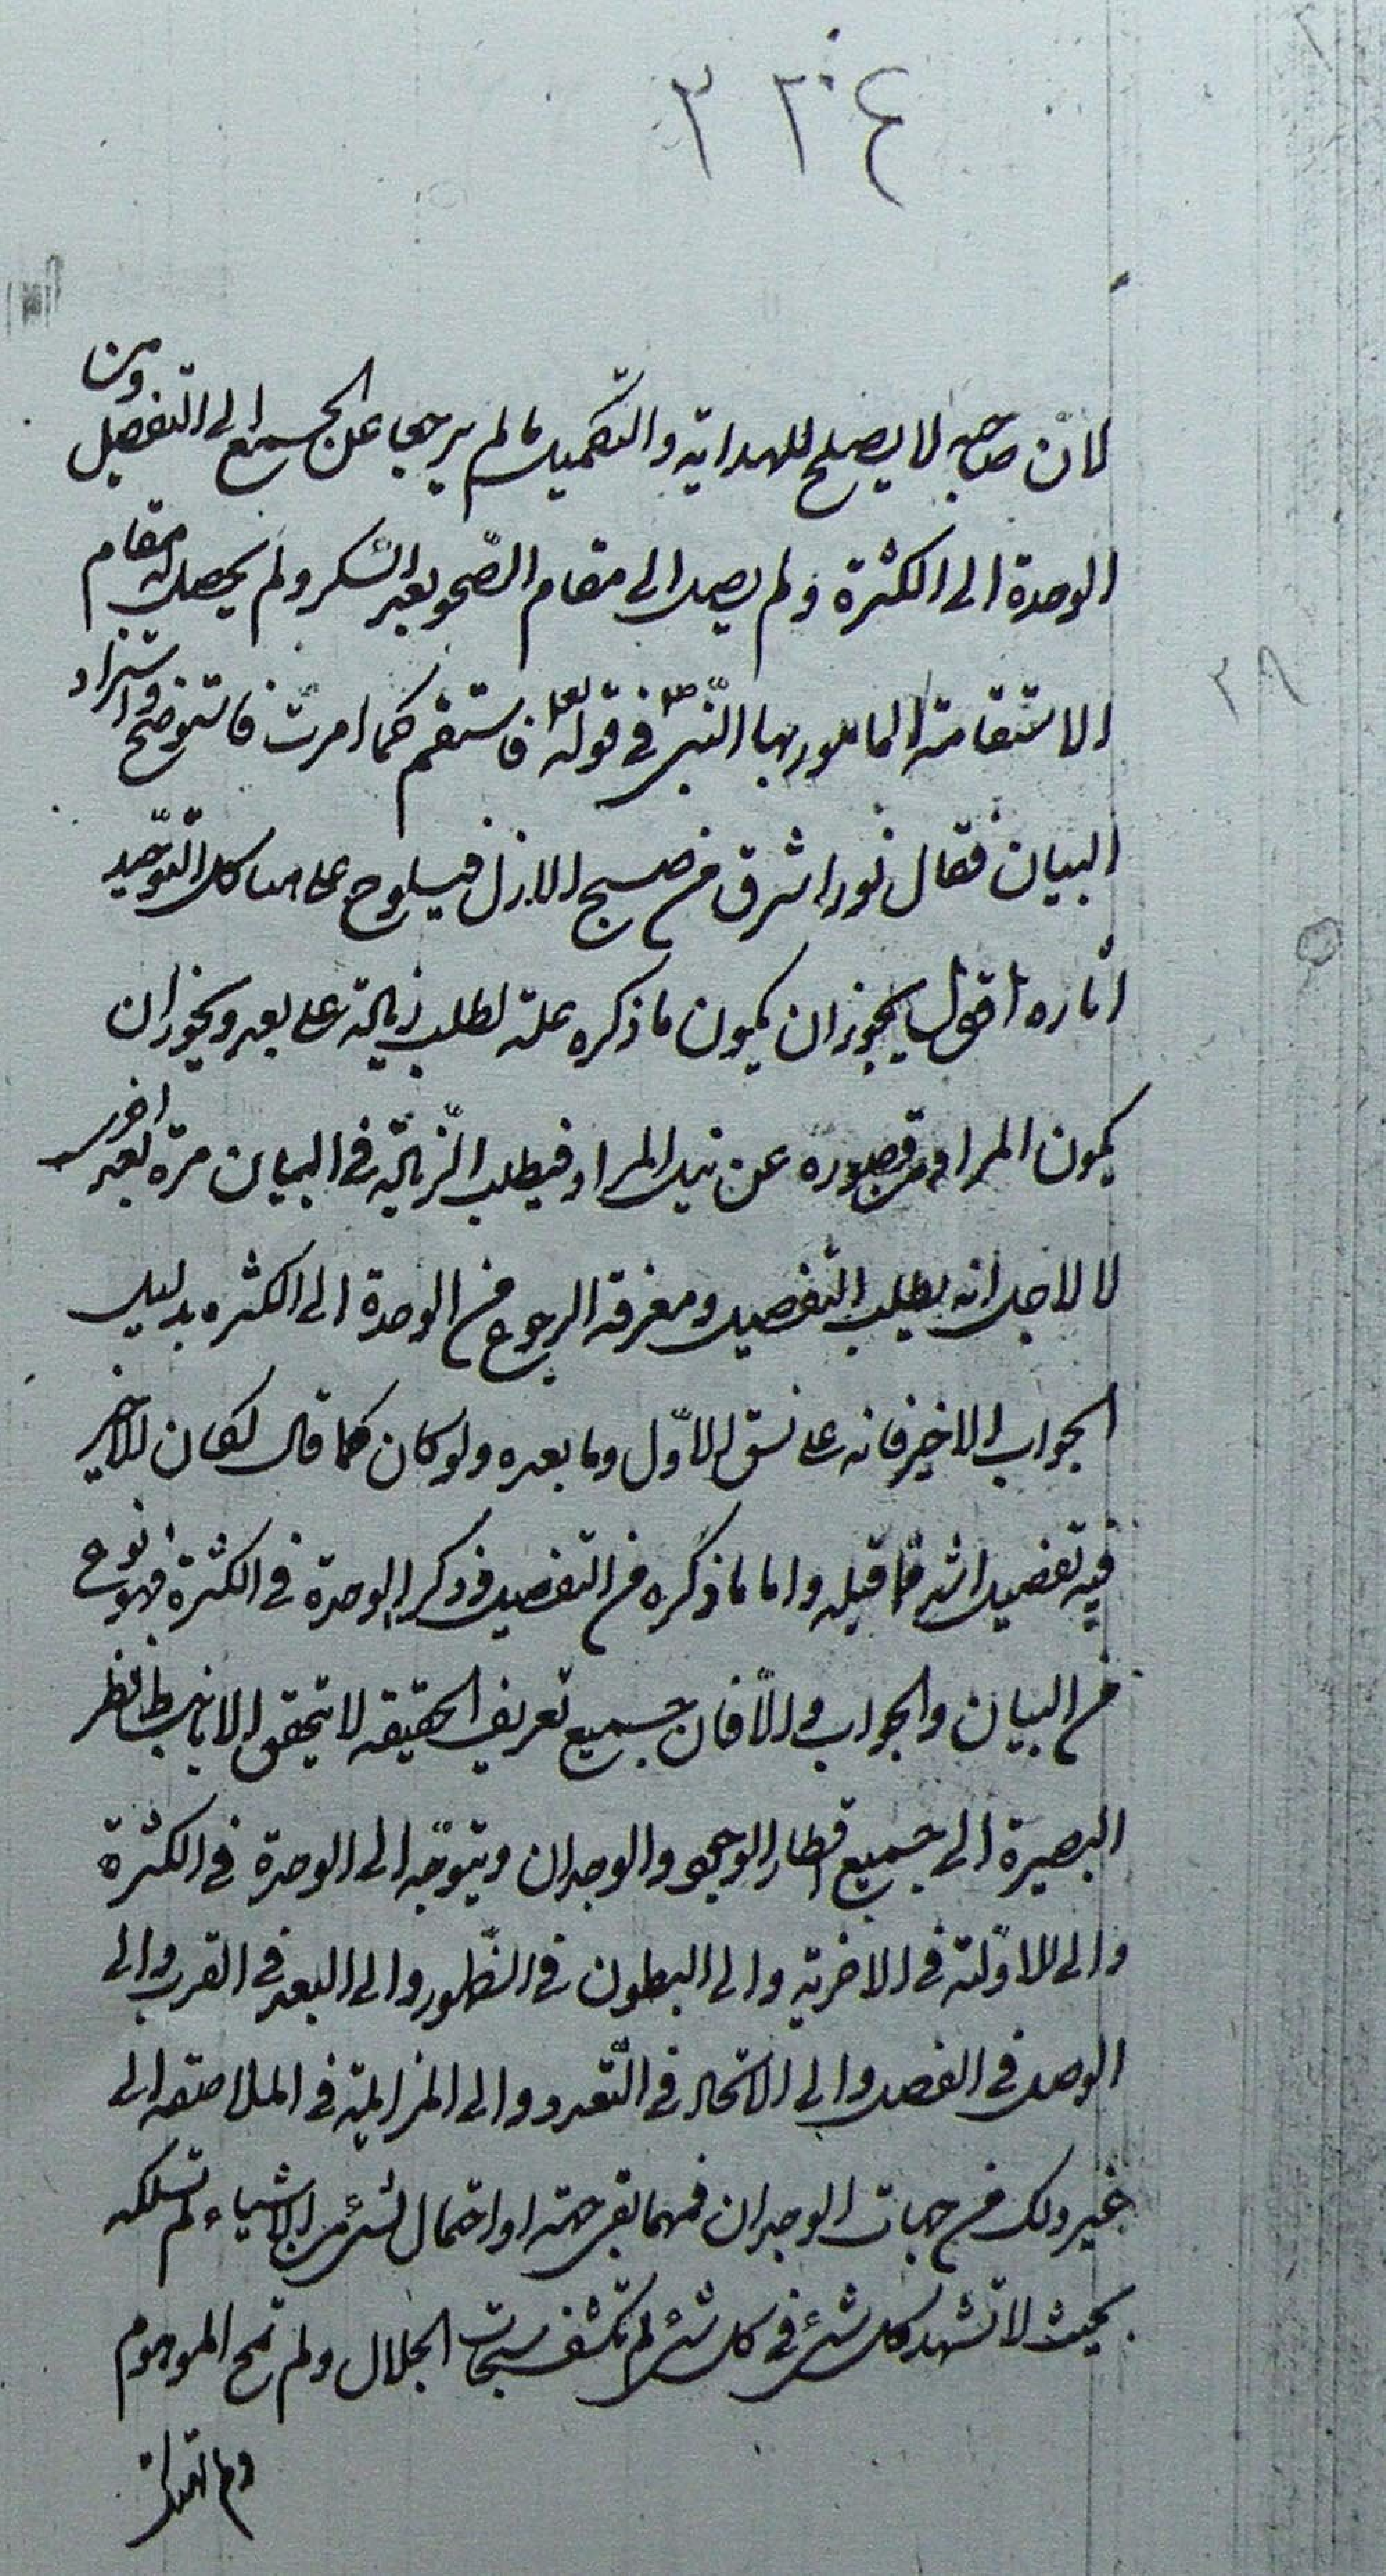 ٣٢٤
لانّ صاحبه لا يصلح للهداية والتكميل ما لم يرجع عن الجمع الى التفصيل ومن
الوحدة الى الكثرة ولم يصل الى مقام الصّحو بعد السّكر ولم يحصل له مقام
الاستقامة المامور بها النّبىّ ص فى قوله تعا فاستقم كما امرت فاستوضح واستزاد
البيان فقال نور اشرق من صبح الازل فيلوح على هياكل التّوحيد
اثاره اقول يجوز ان يكون ما ذكره علة لطلب زيادة على بعد ويجوز ان
يكون المراد من قصوره عن نيل المراد فيطلب الزّيادة فى البيان مرة بعد اخرى
لا لاجل انه يطلب التفصيل ومعرفة الرجوع من الوحدة الى الكثره بدليل
الجواب الاخير فانه على نسق الاوّل وما بعده ولو كان كما قال لكان الاخير
فيه تفصيل اشد مما قبله واما ما ذكره من التفصيل وذكر الوحدة فى الكثرة فهو نوع
من البيان والجواب والّا فان جميع تعريف الحقيقه لا يتحقق الا بانبساط نظر
البصيرة الى جميع اقطار الوجود والوجدان ويتوجّه الى الوحدة فى الكثرة
والى الاوّلية فى الاخرية والى البطون فى الظّهور والى البعد فى القرب والى
الوصل فى الفصل والى الاتحاد فى التّعدد والى المزايلة فى الملاصقه الى
غير ذلك من جهات الوجدان فمهما بقى جهة او احتمال لشئ من الاشياء لم تسلكه
بحيث لا تشهد كل شئ فى كل شئ لم تكشف سبحات الجلال ولم تمح الموهوم
ولم تهتك
٢٨